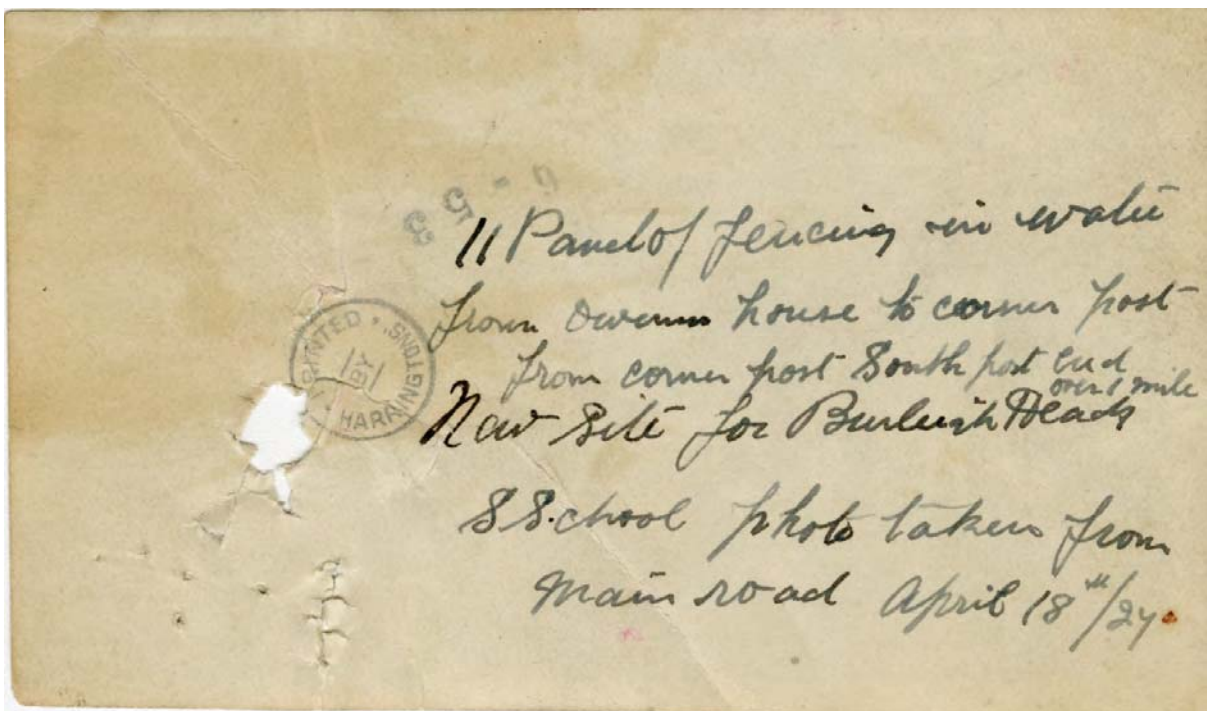 PRINTED BY HARRINGTONS.
11 Panel of fencing in water
from house to corner post
from corner post South post end
over 1 mile
New Site for Burleigh Heads
S S.chool photo taken from
main road April 18th/27.